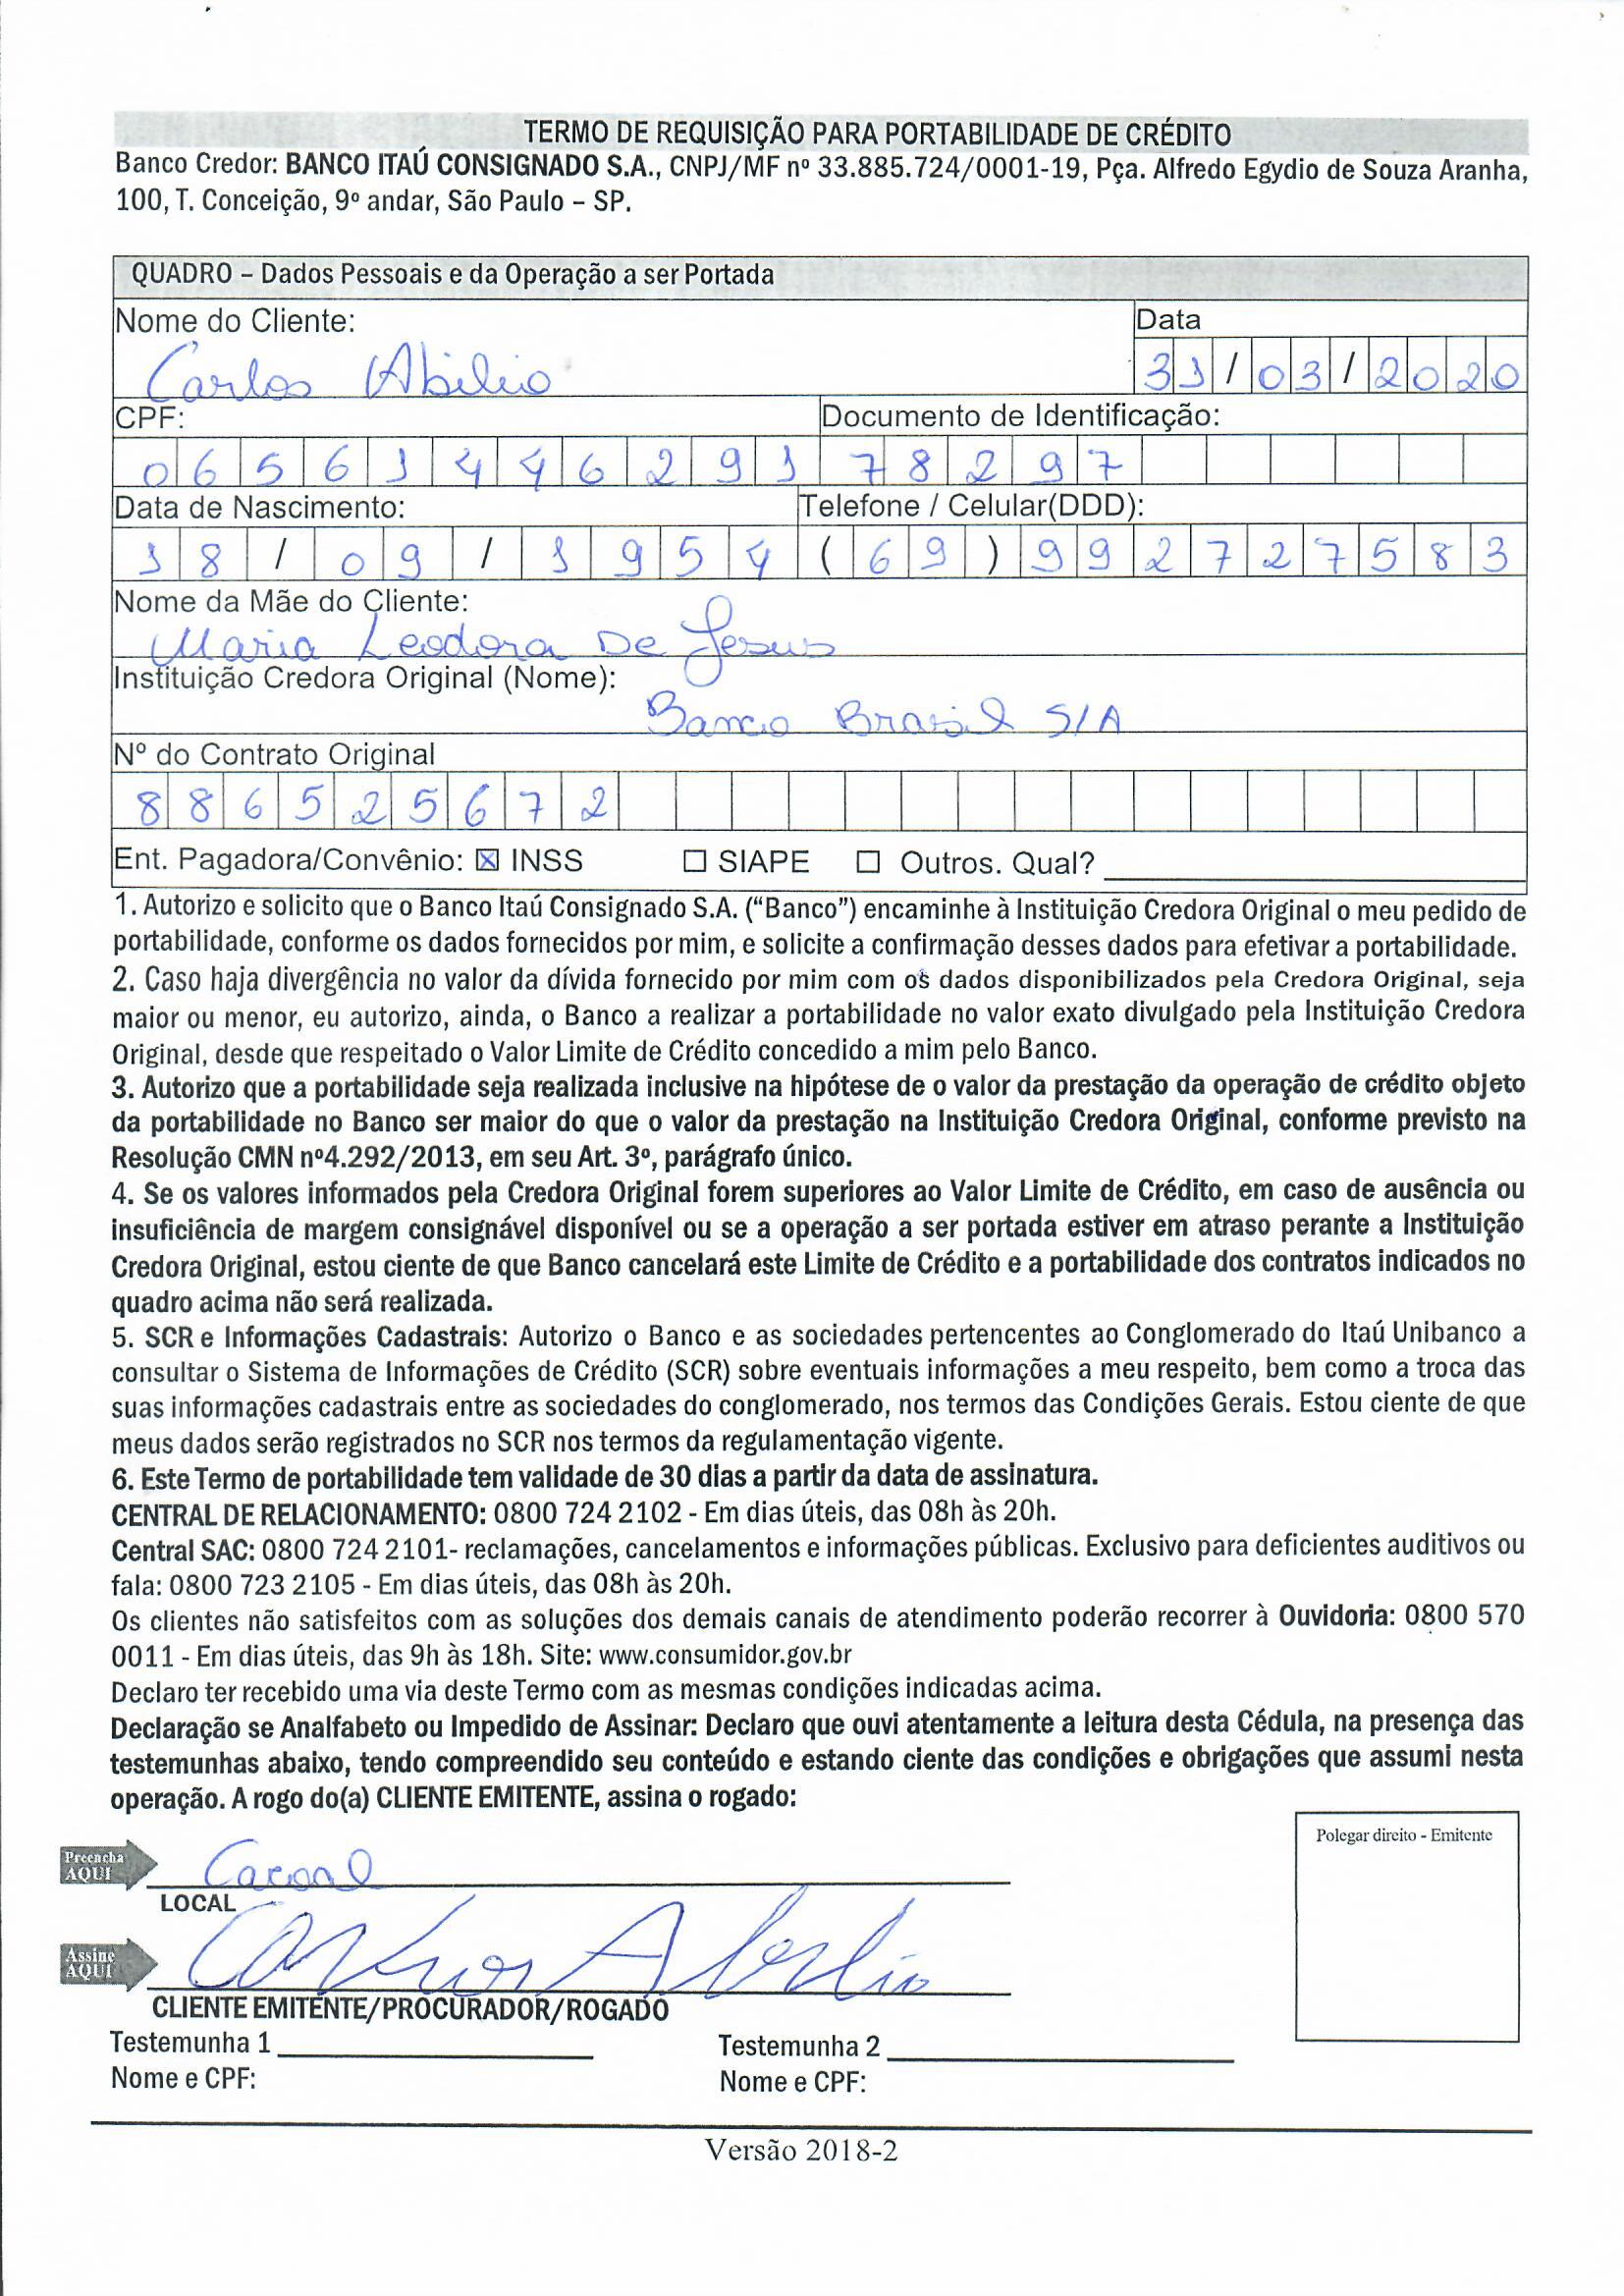 TERMO DE REQUISIÇÃO PARA PORTABILIDADE DE CRÉDITO
Banco Credor: BANCO ITAÚ CONSIGNADO S.A., CNPJ/MF nº 33.885.724/0001-19, Pça. Alfredo Egydio de Souza Aranha,
100, T. Conceição, 9º andar, São Paulo – SP.
QUADRO – Dados Pessoais e da Operação a ser Portada
Nome do Cliente: Data
Carlos Abilio 31/03/2020
CPF: Documento de Identificação:
06561446291 78297
Data de Nascimento: Telefone / Celular(DDD):
18/09/1954 (69)992727583
Nome da Mãe do Cliente:
Maria Leodora De Jesus
Instituição Credora Original (Nome):
Banco Brasil S/A
Nº do Contrato Original
886525672
Ent. Pagadora/Convênio: ☒ INSS ☐ SIAPE ☐ Outros. Qual?
1. Autorizo e solicito que o Banco Itaú Consignado S.A. (“Banco”) encaminhe à Instituição Credora Original o meu pedido de
portabilidade, conforme os dados fornecidos por mim, e solicite a confirmação desses dados para efetivar a portabilidade.
2. Caso haja divergência no valor da dívida fornecido por mim com os dados disponibilizados pela Credora Original, seja
maior ou menor, eu autorizo, ainda, o Banco a realizar a portabilidade no valor exato divulgado pela Instituição Credora
Original, desde que respeitado o Valor Limite de Crédito concedido a mim pelo Banco.
3. Autorizo que a portabilidade seja realizada inclusive na hipótese de o valor da prestação da operação de crédito objeto
da portabilidade no Banco ser maior do que o valor da prestação na Instituição Credora Original, conforme previsto na
Resolução CMN nº4.292/2013, em seu Art. 3º, parágrafo único.
4. Se os valores informados pela Credora Original forem superiores ao Valor Limite de Crédito, em caso de ausência ou
insuficiência de margem consignável disponível ou se a operação a ser portada estiver em atraso perante a Instituição
Credora Original, estou ciente de que Banco cancelará este Limite de Crédito e a portabilidade dos contratos indicados no
quadro acima não será realizada.
5. SCR e Informações Cadastrais: Autorizo o Banco e as sociedades pertencentes ao Conglomerado do Itaú Unibanco a
consultar o Sistema de Informações de Crédito (SCR) sobre eventuais informações a meu respeito, bem como a troca das
suas informações cadastrais entre as sociedades do conglomerado, nos termos das Condições Gerais. Estou ciente de que
meus dados serão registrados no SCR nos termos da regulamentação vigente.
6. Este Termo de portabilidade tem validade de 30 dias a partir da data de assinatura.
CENTRAL DE RELACIONAMENTO: 0800 724 2102 - Em dias úteis, das 08h às 20h.
Central SAC: 0800 724 2101- reclamações, cancelamentos e informações públicas. Exclusivo para deficientes auditivos ou
fala: 0800 723 2105 - Em dias úteis, das 08h às 20h.
Os clientes não satisfeitos com as soluções dos demais canais de atendimento poderão recorrer à Ouvidoria: 0800 570
0011 - Em dias úteis, das 9h às 18h. Site: www.consumidor.gov.br
Declaro ter recebido uma via deste Termo com as mesmas condições indicadas acima.
Declaração se Analfabeto ou Impedido de Assinar: Declaro que ouvi atentamente a leitura desta Cédula, na presença das
testemunhas abaixo, tendo compreendido seu conteúdo e estando ciente das condições e obrigações que assumi nesta
operação. A rogo do(a) CLIENTE EMITENTE, assina o rogado:
Polegar direito - Emitente
Preencha
AQUI
Cacoal
LOCAL
Assine
AQUI
Carlos Abilio
CLIENTE EMITENTE/PROCURADOR/ROGADO
Testemunha 1 Testemunha 2
Nome e CPF: Nome e CPF:
Versão 2018-2